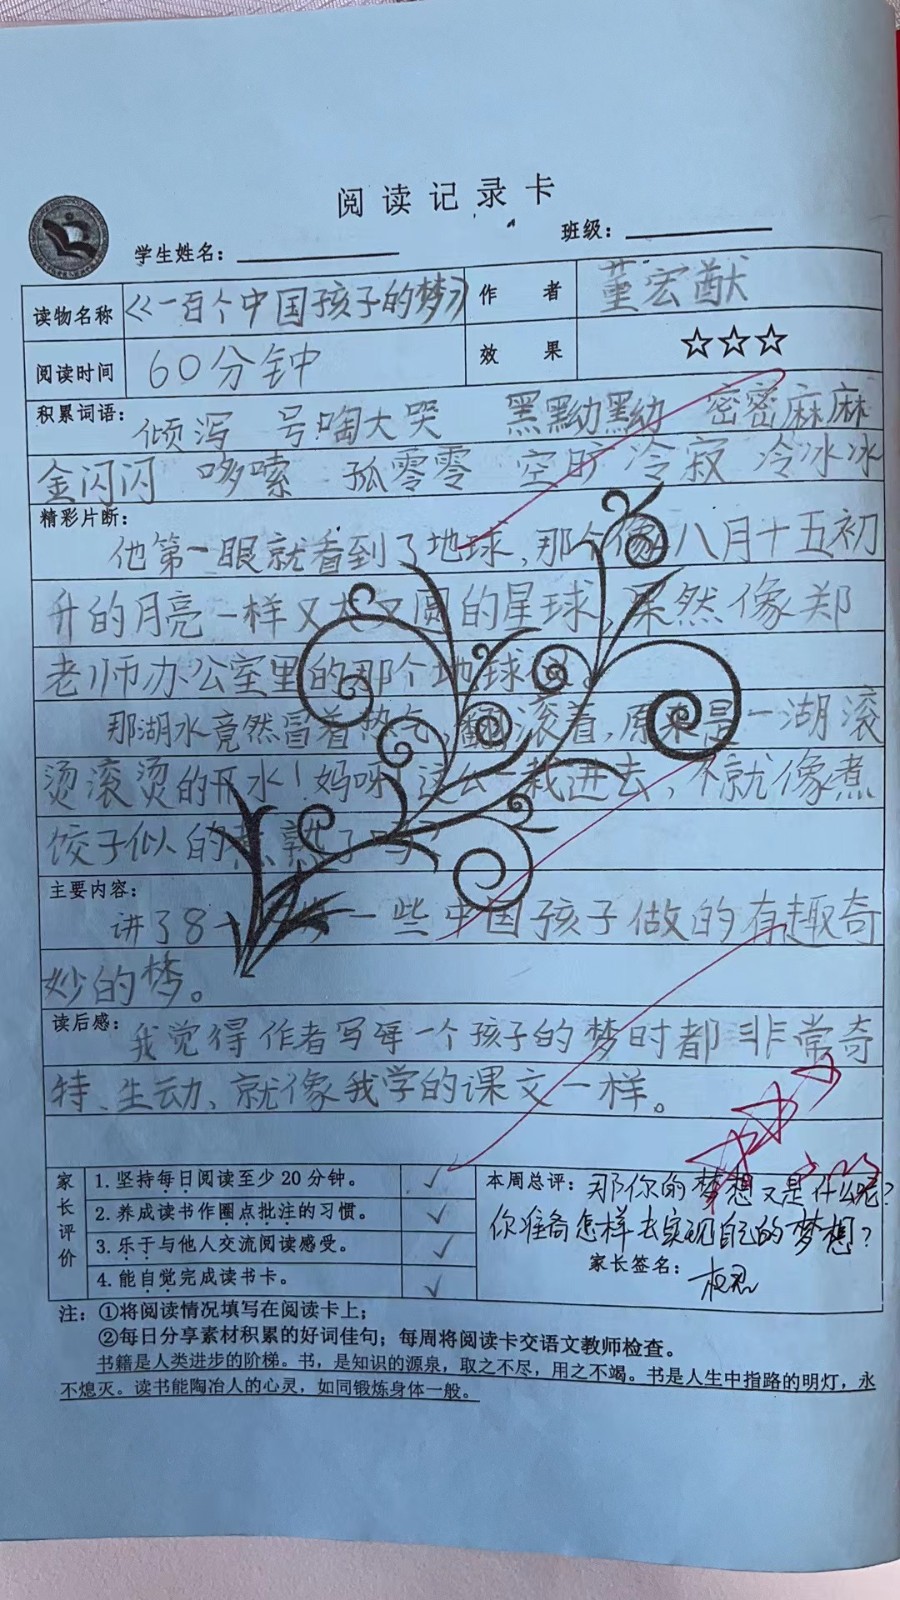 阅读记录卡
学生姓名： 班级：
读物名称 《一百个中国孩子的梦》 作者 董宏猷
阅读时间 60分钟 效果 ☆☆☆
积累词语： 倾泻 号啕大哭 黑黝黝 密密麻麻
金闪闪 哆嗦 孤零零 空旷 冷寂 冷冰冰
精彩片断：
他第一眼就看到了地球，那个像八月十五初
升的月亮一样又大又圆的星球，果然像郑
老师办公室里的那个地球
那湖水竟然冒着热气，翻滚着，原来是一湖滚
烫滚烫的开水！妈呀！这么一栽进去，不就像煮
饺子似的煮熟了吗？
主要内容：
讲了8 一些中国孩子做的有趣奇
妙的梦。
读后感：
我觉得作者写每一个孩子的梦时都非常奇
特、生动、就像我学的课文一样。
家长评价
1.坚持每日阅读至少20分钟。 ✓
2.养成读书作圈点批注的习惯。 ✓
3.乐于与他人交流阅读感受。 ✓
4.能自觉完成读书卡。 ✓
本周总评：那你的梦想又是什么呢？
你准备怎样去实现自己的梦想？
家长签名：
注：①将阅读情况填写在阅读卡上；
②每日分享素材积累的好词佳句；每周将阅读卡交语文教师检查。
书籍是人类进步的阶梯。书，是知识的源泉，取之不尽，用之不竭。书是人生中指路的明灯，永
不熄灭。读书能陶冶人的心灵，如同锻炼身体一般。